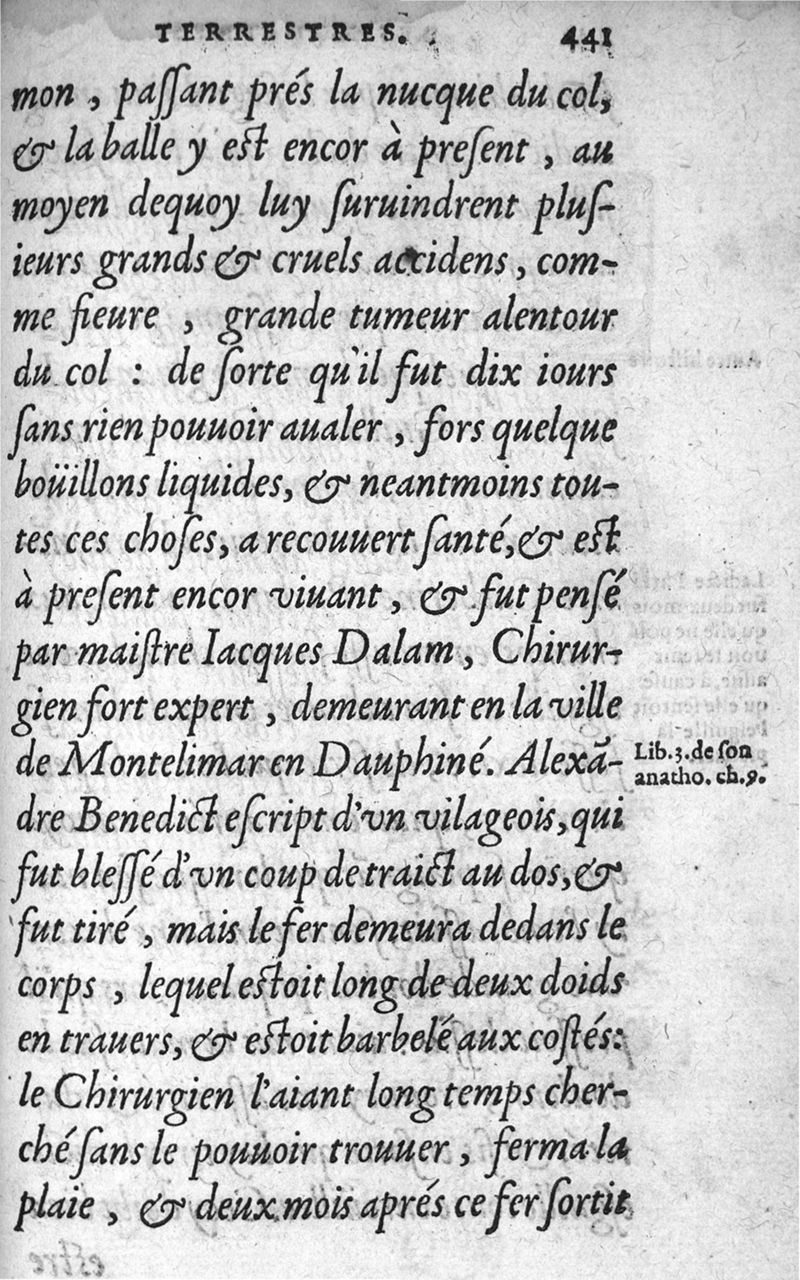 TERRESTRES. 441
mon , paſſant prés la nucque du col,
& la balle y eſt encor à preſent , au
moyen dequoy luy ſuruindrent pluſ-
ieurs grands & cruels accidens , com-
me fieure , grande tumeur alentour
du col : de ſorte qu'il fut dix iours
ſans rien pouuoir aualer , fors quelque
boüillons liquides, & neantmoins tou-
tes ces choſes, a recouuert ſanté,& eſt
à preſent encor viuant , & fut penſé
par maiſtre Iacques Dalam , Chirur-
gien fort expert , demeurant en la ville
de Montelimar en Dauphiné. Alexã-
Lib.3.de ſon
anatho. ch.9.
dre Benedict eſcript d'vn vilageois,qui
fut bleſſé d'vn coup de traict au dos,&
fut tiré , mais le fer demeura dedans le
corps , lequel eſtoit long de deux doids
en trauers, & eſtoit barbelé aux coſtés:
le Chirurgien l'aiant long temps cher-
ché ſans le pouuoir trouuer , ferma la
plaie , & deux mois aprés ce fer ſortit